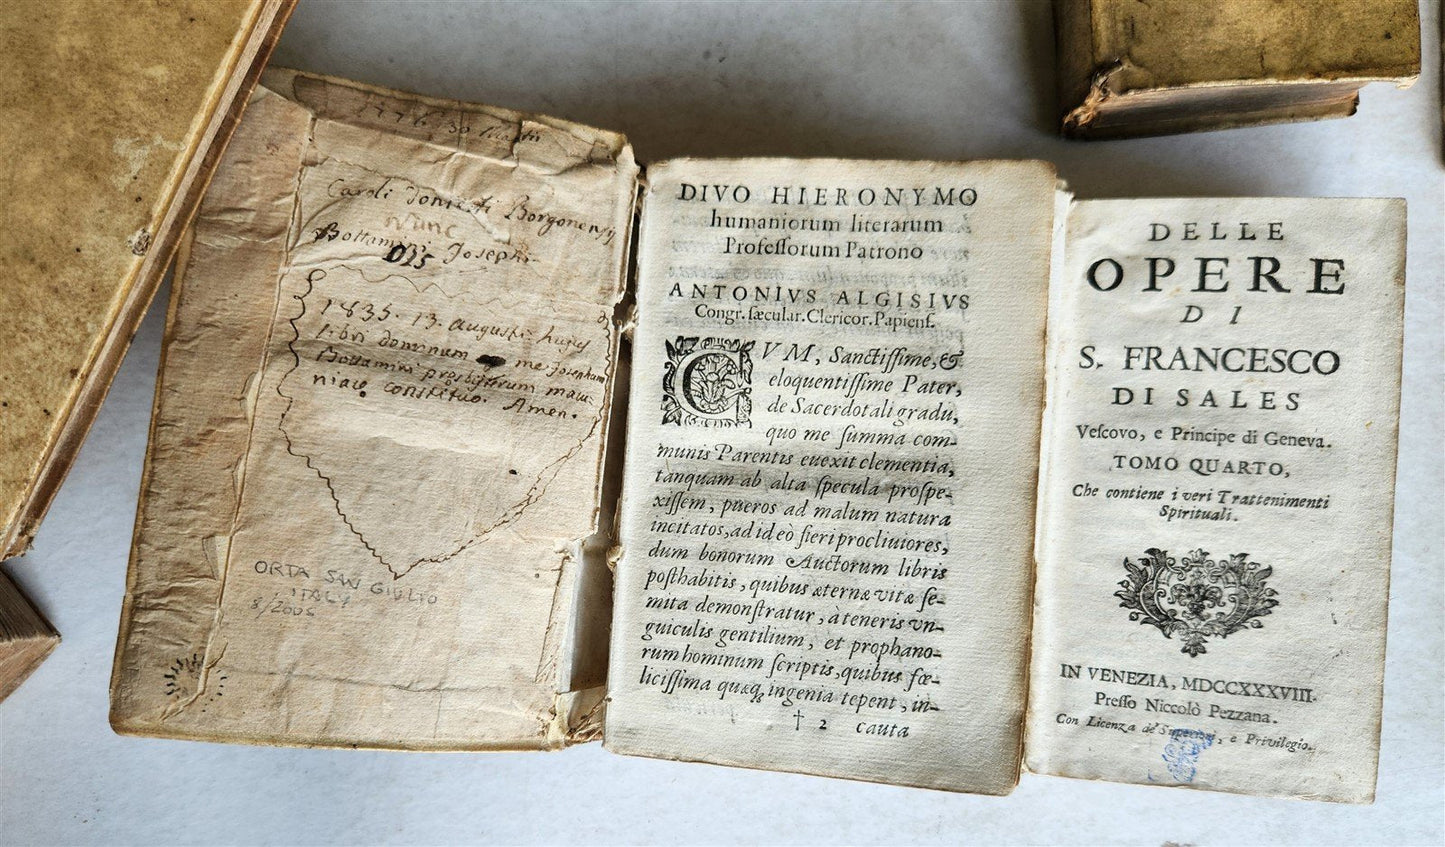 1776. 30 Martii
Caroli Borgonensis
Nunc
Bottamini Josephi
1835. 13. augusti hujus
libri dominum me Josephum
Bottamini presbyterum mani-
niace constituo. Amen.
ORTA SAN GIULIO
ITALY
8/2005
DIVO HIERONYMO
humaniorum literarum
Profeſſorum Patrono
ANTONIVS ALGISIVS
Congr. ſæcular. Clericor. Papienſ.
CVM, Sanctiſſime, &
eloquentiſſime Pater,
de Sacerdotali gradu,
quo me ſumma com-
munis Parentis euexit clementia,
tanquam ab alta ſpecula proſpe-
xiſſem, pueros ad malum natura
incitatos, ad id eò fieri procliuiores,
dum bonorum Auctorum libris
poſthabitis, quibus æternæ vitæ ſe-
mita demonſtratur, à teneris vn-
guiculis gentilium, et prophano-
rum hominum ſcriptis, quibus fœ-
liciſſima quæq; ingenia tepent, in-
† 2 cauta
DELLE
OPERE
DI
S. FRANCESCO
DI SALES
Veſcovo, e Principe di Geneva.
TOMO QUARTO,
Che contiene i veri Trattenimenti
Spirituali.
IN VENEZIA, MDCCXXXVIII.
Preſſo Niccolò Pezzana.
Con Licenza de' Superiori, e Privilegio.